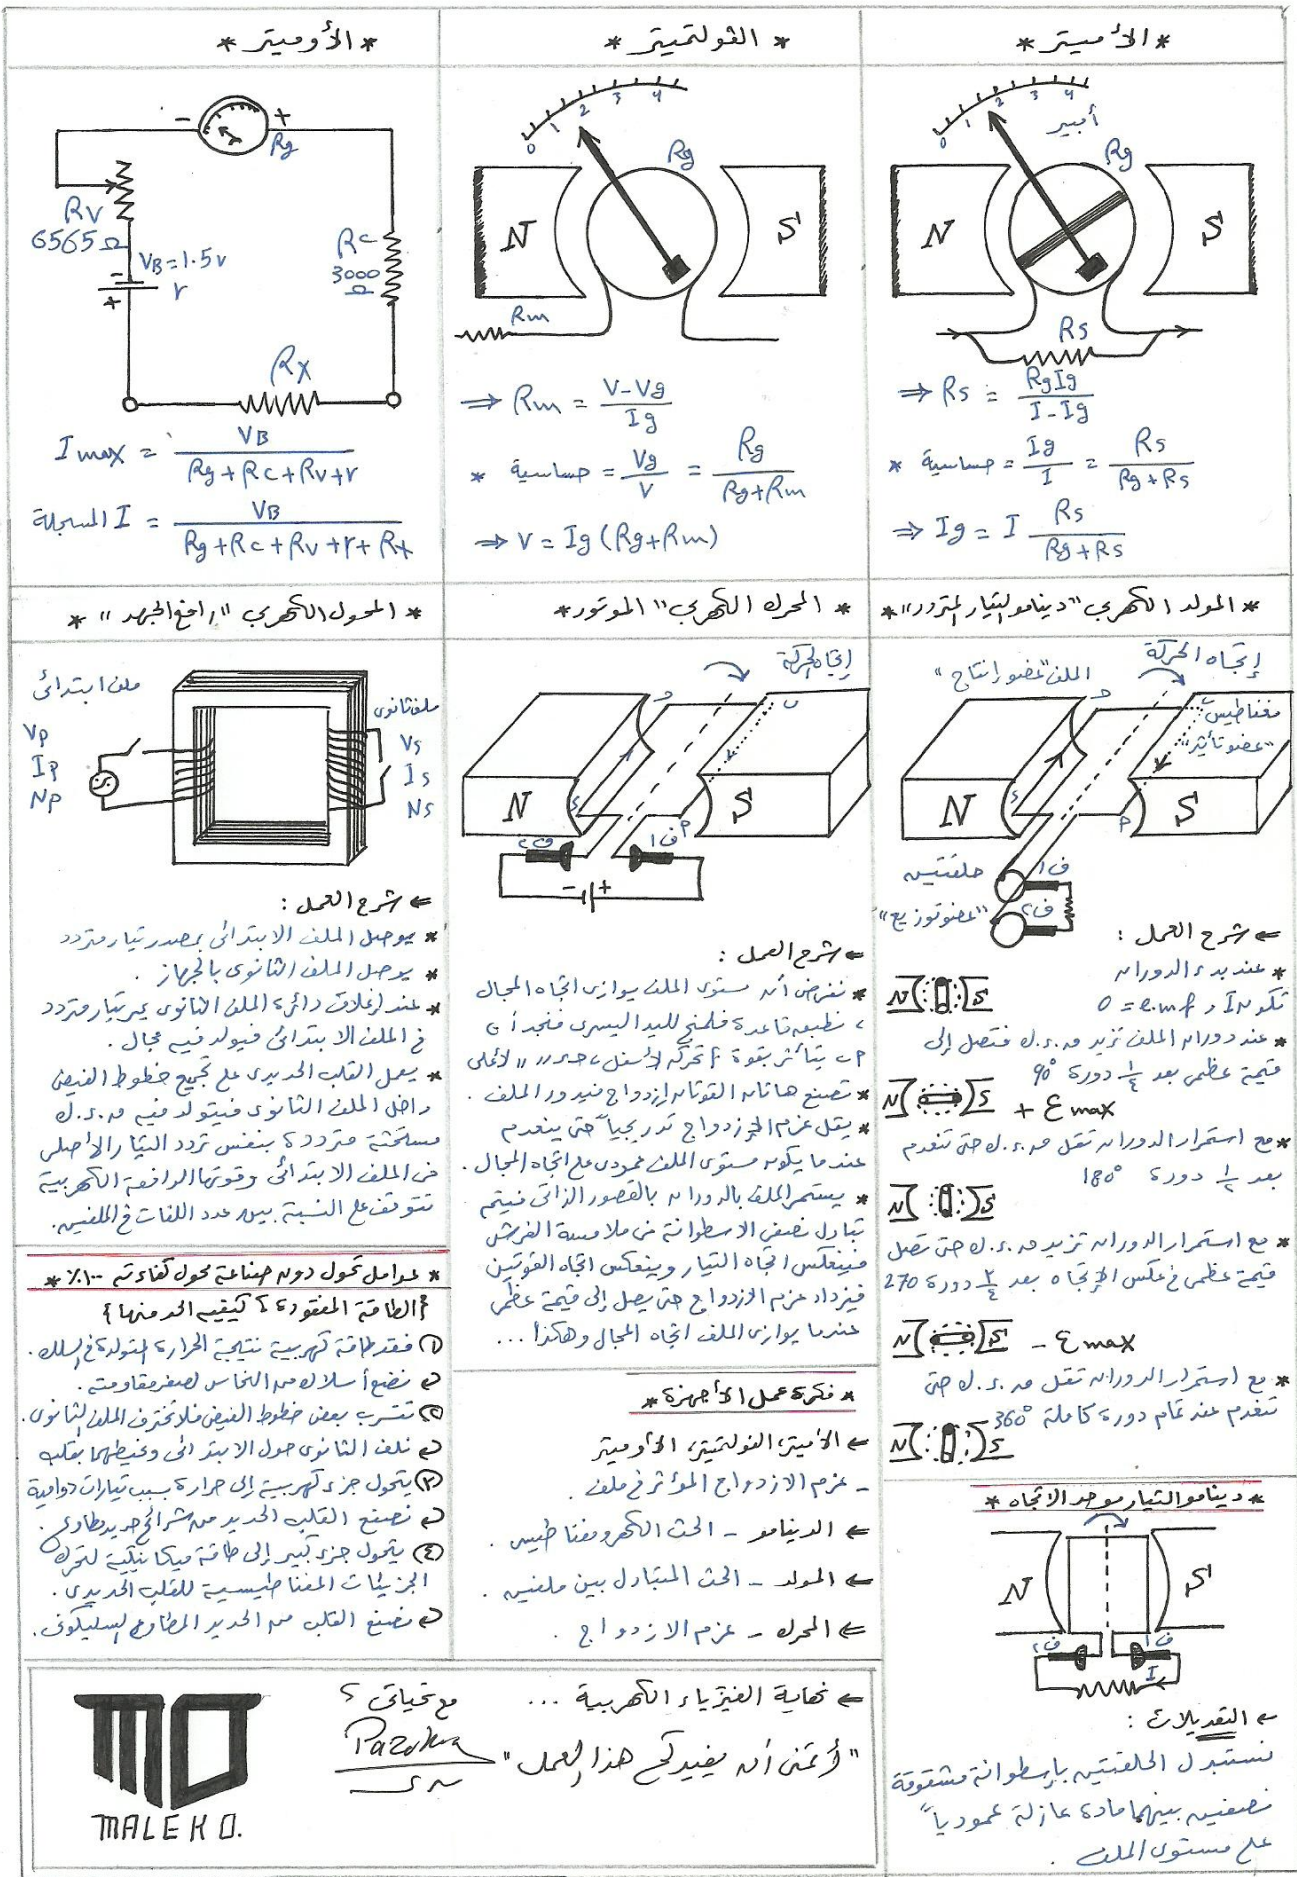 * الأميتر *
0 1 2 3 4
أمبير
Rg
N
S
Rs
⇒ Rs = RgIg / I-Ig
* حساسية = Ig / I = Rs / Rg+Rs
⇒ Ig = I Rs / Rg+Rs
* الڤولتميتر *
0 1 2 3 4
Rg
N
S
Rm
⇒ Rm = V-Vg / Ig
* حساسية = Vg / V = Rg / Rg+Rm
⇒ V = Ig (Rg+Rm)
* الأوميتر *
- +
Rg
Rv
6565 Ω
VB=1.5v
r
- +
Rc
3000
Ω
Rx
I max = VB / Rg+Rc+Rv+r
I المسجلة = VB / Rg+Rc+Rv+r+Rx
* المولد الكهربي "دينامو التيار المتردد" *
إتجاه الحركة
الملف "عضو إنتاج"
مغناطيس
"عضو تأثير"
N
S
حلقتين
"عضو توزيع"
ف١
ف٢
← شرح العمل :
* عند بدء الدوران
تكون I و e.m.f = 0
N S
* عند دوران الملف تزيد ق.د.ك فتصل إلى
قيمة عظمى بعد ١/٤ دورة 90°
N S + Ɛmax
* مع استمرار الدوران تقل ق.د.ك حتى تنعدم
بعد ١/٢ دورة 180°
N S
* مع استمرار الدوران تزيد ق.د.ك حتى تصل
قيمة عظمى في عكس الإتجاه بعد ٣/٤ دورة 270
N S - Ɛmax
* مع استمرار الدوران تقل ق.د.ك حتى
تنعدم عند تمام دورة كاملة 360°
N S
* دينامو التيار موحد الاتجاه *
N
S
ف٢
ف١
I
← التعديلات :
نستبدل الحلقتين بإسطوانة مشقوقة
نصفين بينهما مادة عازلة عمودياً
على مستوى الملف .
* المحرك الكهربي "الموتور" *
إتجاه الحركة
N
S
ف٢
ف١
- +
← شرح العمل :
* نفرض أن مستوى الملف يوازي اتجاه المجال
، نطبق قاعدة فلمنج لليد اليسرى فنجد أن
يتأثر بقوة تحركه لأسفل ، لأعلى
* تصنع هاتان القوتان إزدواج فيدور الملف .
* يقل عزم الإزدواج تدريجياً حتى ينعدم
عندما يكون مستوى الملف عمودي على اتجاه المجال .
* يستمر الملف بالدوران بالقصور الذاتي فيتم
تبادل نصفي الاسطوانة في ملامسة الفرش
فينعكس اتجاه التيار وينعكس اتجاه القوتين
فيزداد عزم الازدواج حتى يصل إلى قيمة عظمى
عندما يوازي الملف اتجاه المجال وهكذا...
* فكرة عمل الأجهزة *
← الأميتر، الڤولتميتر، الأوميتر
- عزم الازدواج المؤثر في ملف .
← الدينامو - الحث الكهرومغناطيسي .
← المولد - الحث المتبادل بين ملفين .
← المحرك - عزم الازدواج .
* المحول الكهربي "رافع الجهد" *
ملف ابتدائي
Vp
Ip
Np
ملف ثانوي
Vs
Is
Ns
← شرح العمل :
* يوصل الملف الابتدائي بمصدر تيار متردد
* يوصل الملف الثانوي بالجهاز .
* عند إغلاق دائرة الملف الثانوي يمر تيار متردد
في الملف الابتدائي فيولد فيه مجال .
* يعمل القلب الحديدي على تجميع خطوط الفيض
داخل الملف الثانوي فيتولد فيه ق.د.ك
مستحثة مترددة بنفس تردد التيار الأصلي
في الملف الابتدائي وقوتها الدافعة الكهربية
تتوقف على النسبة بين عدد اللفات في الملفين.
* عوامل تحول دون صناعة محول كفاءته ١٠٠٪ *
{الطاقة المفقودة ، كيفية الحد منها}
① فقد طاقة كهربية نتيجة الحرارة المتولدة في السلك .
نضع أسلاك من النحاس لصغر مقاومته .
② تتسرب بعض خطوط الفيض فلا تخترق الملف الثانوي .
نلف الثانوي حول الابتدائي وغيطهما بقلب
③ يتحول جزء كهربية إلى حرارة بسبب تيارات دوامية
نصنع القلب الحديد من شرائح حديد مطاوع .
④ يتحول جزء كبير إلى طاقة ميكانيكية لتحرك
الجزيئات المغناطيسية للقلب الحديدي .
نصنع القلب من الحديد المطاوع السليكوني .
← نهاية الفيزياء الكهربية ...
مع تحياتي ،
"أتمنى أن يفيدكم هذا العمل"
MALEKO.